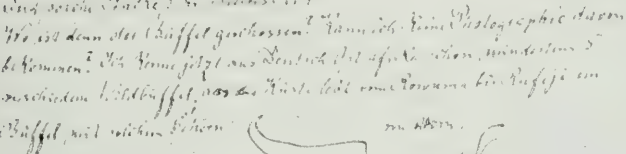 und seine Maße?
Wo ist denn der Büffel geschossen? Kann ich keine Photographie davon
bekommen? Ich kenne jetzt aus Deutsch Ost afrika schon mindestens 5
verschiedene Wildbüffel, an der Küste lebt vom Rowuma bis Rufiji ein
Büffel, mit solchen Hörnern von vorn.